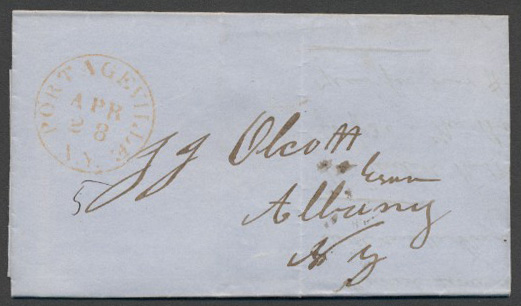 PORTAGEVILLE N.Y.
APR
28
5
J J Olcott
Esqr
Albany
N Y